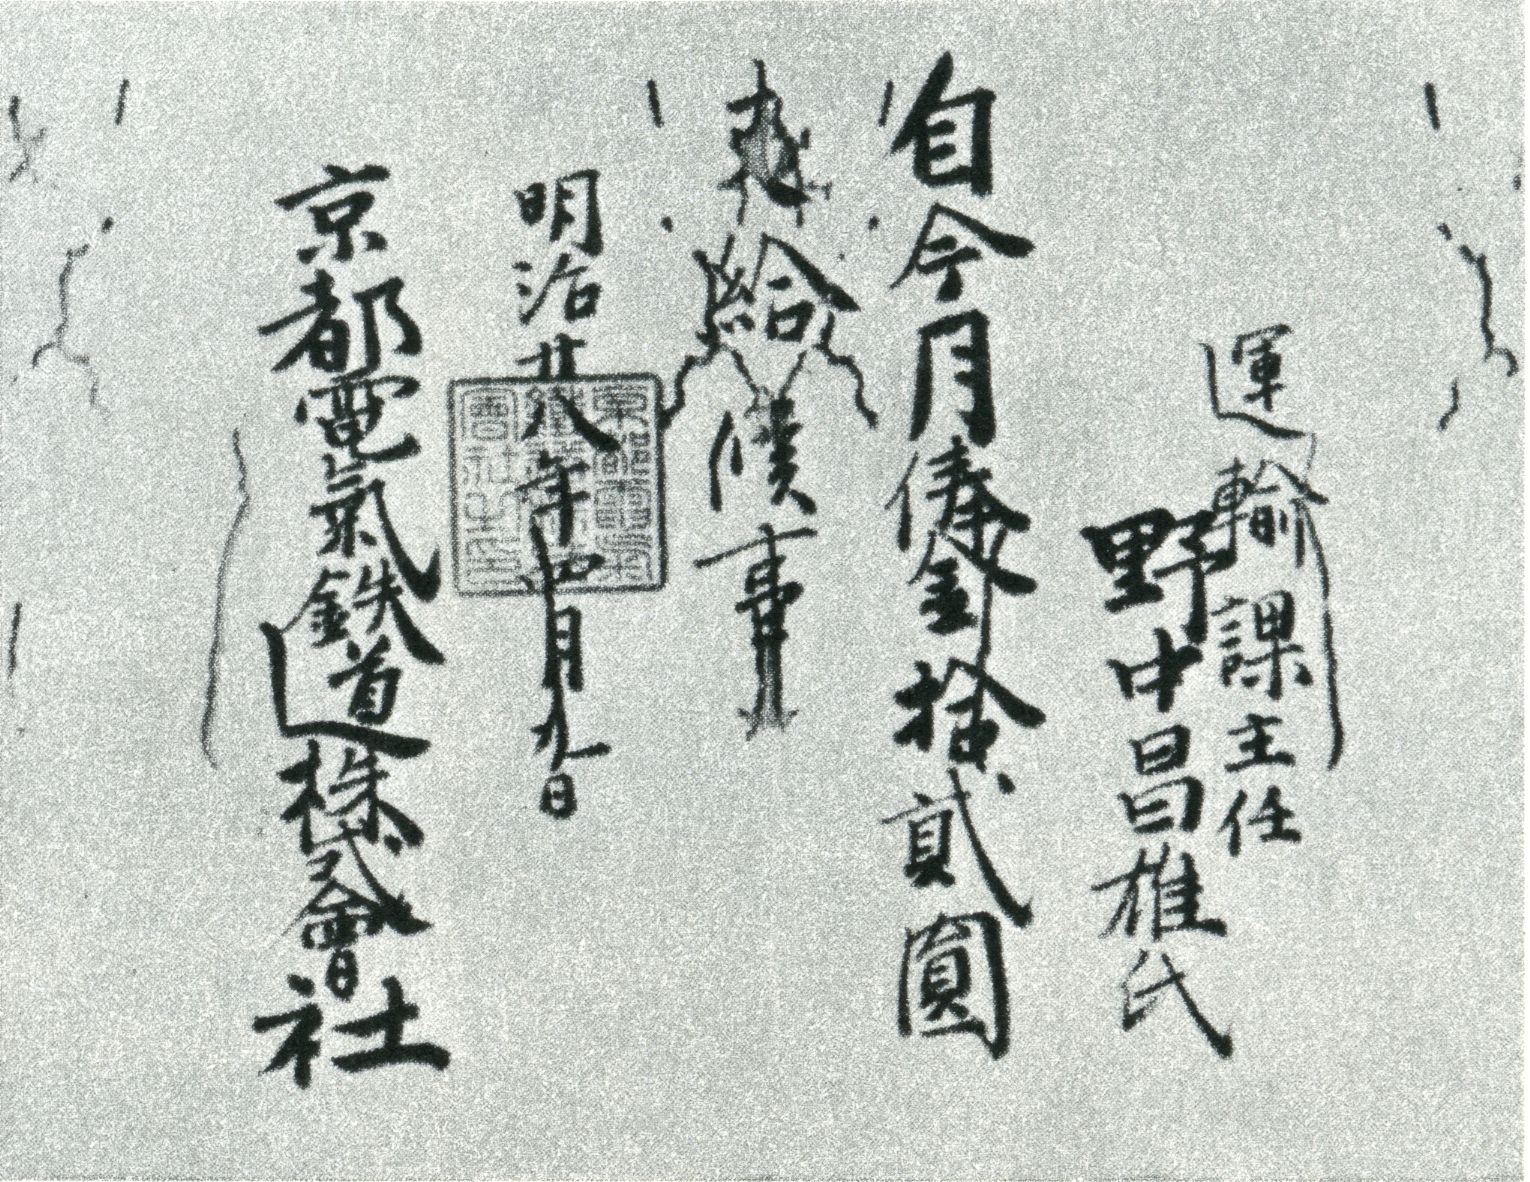 運輸課主任
野中昌雄氏
自今月俸金拾貳圓
支給候事
明治廿八年四月九日
京都電氣鉄道株式會社
京都電氣
鐵道株式
會社之印